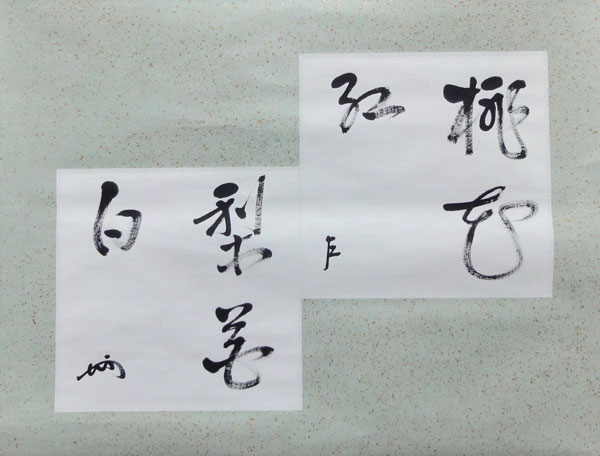 桃花
紅
梨花
白